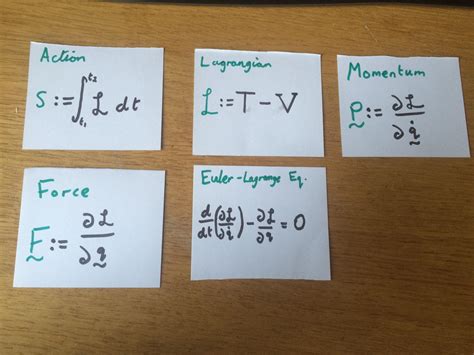 Action
S := ∫_{t₁}^{t₂} L dt
Lagrangian
L := T - V
Momentum
p̰ := ∂L/∂q̰̇
Force
F̰ := ∂L/∂q̰
Euler-Lagrange Eq.
d/dt(∂L/∂q̇) - ∂L/∂q = 0